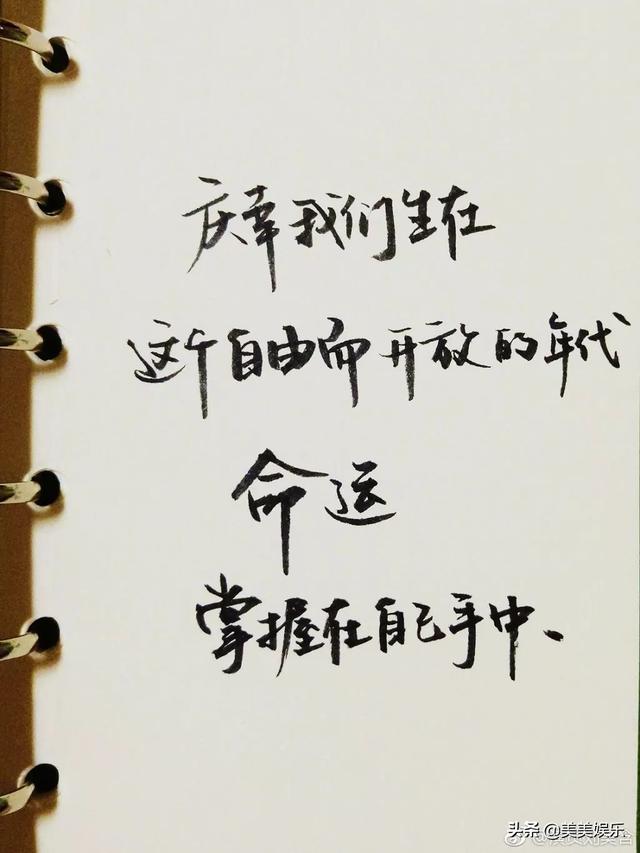 庆幸我们生在
这个自由而开放的年代
命运
掌握在自己手中、
头条 @美美娱乐